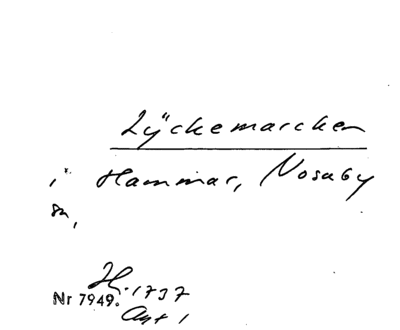 Lÿckemarcken
i Hammar, Nosaby
sn,
H. 1737
Nr 7949.
Akt 1